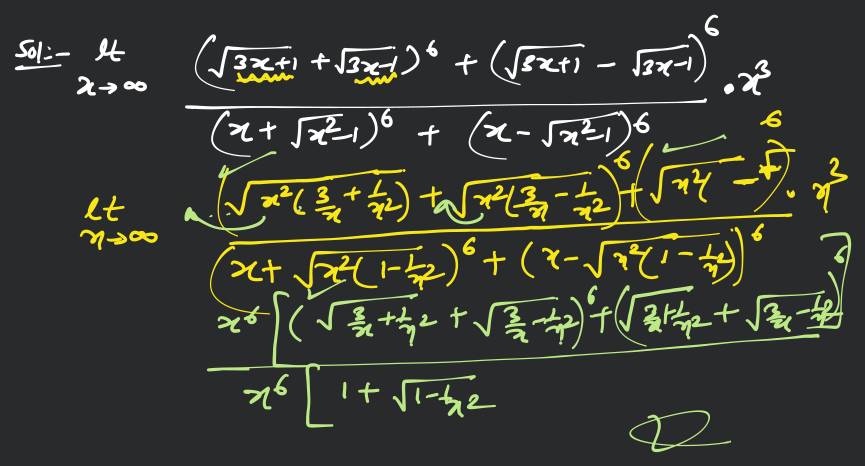 Sol:- lt x→∞ ((√(3x+1) + √(3x-1))^6 + (√(3x+1) - √(3x-1))^6) / ((x + √(x²-1))^6 + (x - √(x²-1))^6) . x³
lt x→∞ ((√(x²(3/x + 1/x²)) + √(x²(3/x - 1/x²)))^6 + (√(x²( - √)^6) / ((x + √(x²(1 - 1/x²)))^6 + (x - √(x²(1 - 1/x²)))^6) . x³
x^6 [(√(3/x + 1/x²) + √(3/x - 1/x²))^6 + (√(3/x + 1/x²) + √(3/x - 1/x²))^6]
x^6 [ 1 + √(1 - 1/x²)